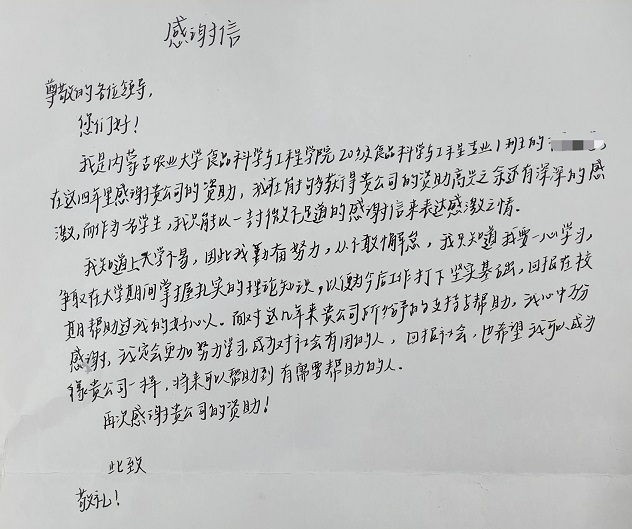 感谢信
尊敬的各位领导,
您们好!
我是内蒙古农业大学食品科学与工程学院20级食品科学与工程专业1班的
在这四年里感谢贵公司的资助,我在有能够获得贵公司的资助高兴之余还有深深的感
激,而作为一名学生,我只能以一封微不足道的感谢信来表达感激之情。
我知道上大学不易,因此我勤奋努力,从不敢懈怠,我只知道我要一心学习,
争取在大学期间掌握扎实的理论知识,以便为今后工作打下坚实基础,回报在校
期帮助过我的好心人。面对这几年来贵公司所给予的支持与帮助,我心中万分
感谢,我定会更加努力学习,成为对社会有用的人,回报社会,也希望我可以成为
像贵公司一样,将来可以帮助到有需要帮助的人。
再次感谢贵公司的资助!
此致
敬礼!